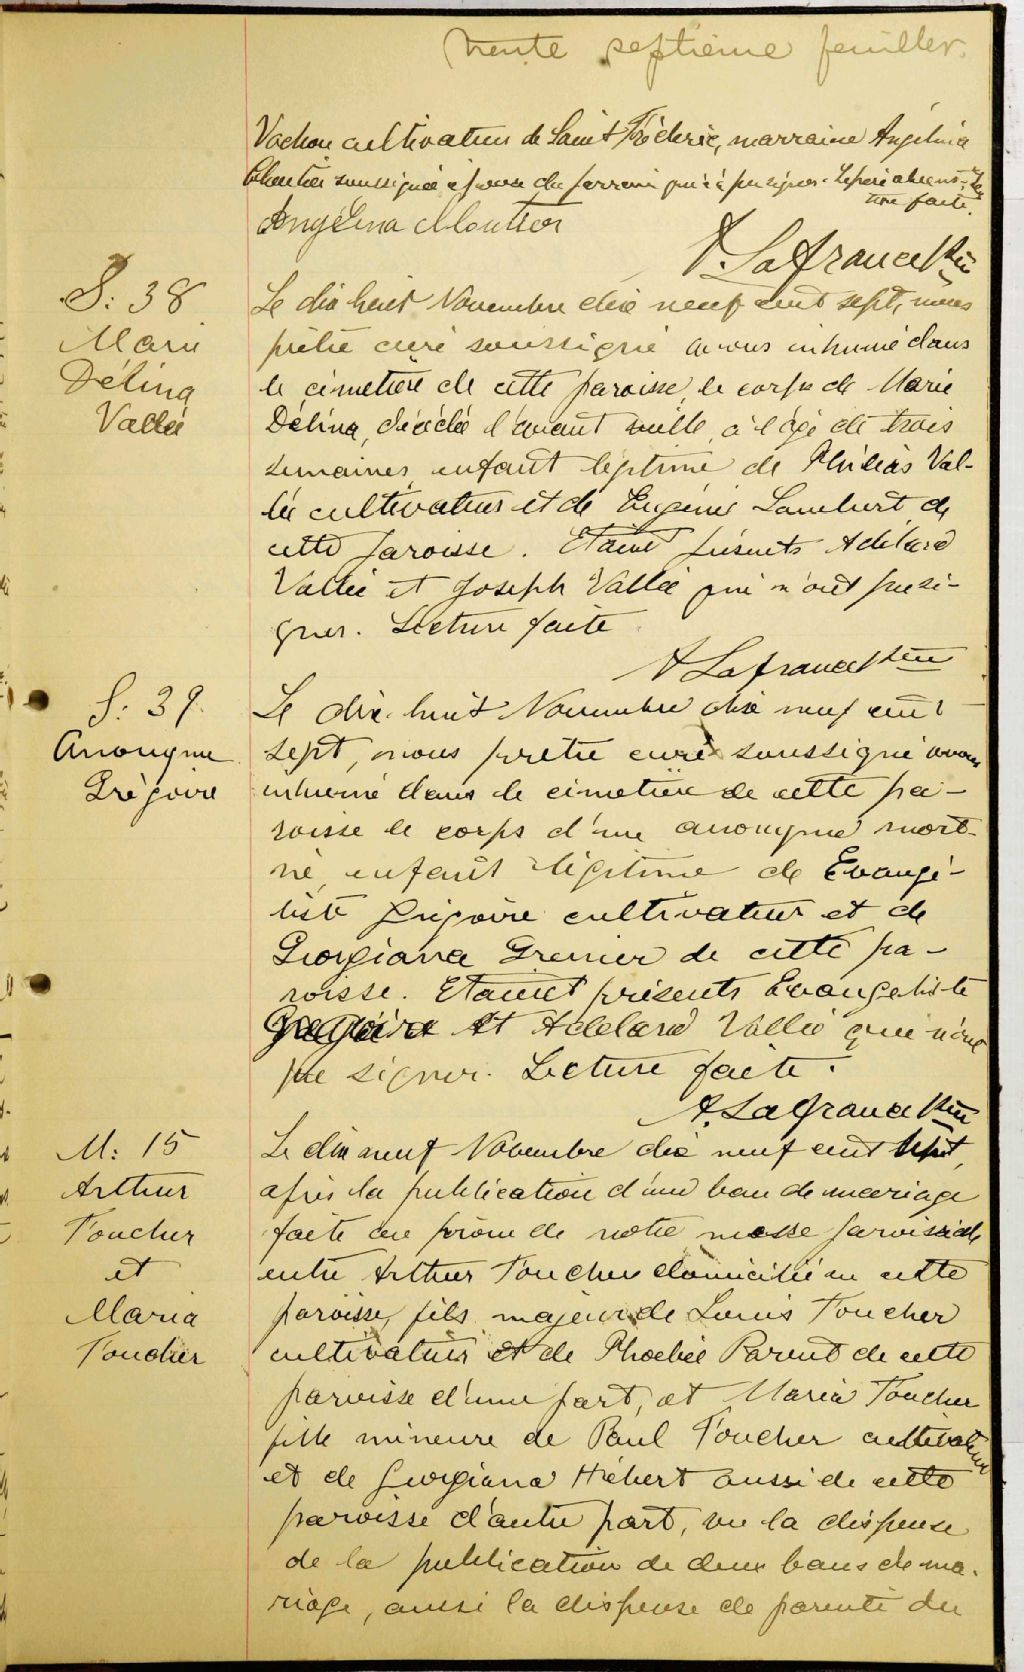 trente septième feuillet.
Vachon cultivateur de Saint Fréderic, marraine Angélina
Cloutier soussignée épouse du parrain qui n'a pu signer. Le père absent. Lec
ture faite.
Angélina Cloutier
A. Lafrance Ptre
S: 38
Marie
Délina
Vallée
Le dix huit Novembre dix neuf cent sept, nous
prêtre curé soussigné avons inhumé dans
le cimetière de cette paroisse, le corps de Marie
Délina, décédée l'avant veille, à l'âge de trois
semaines, enfant légitime de Philéas Val-
lée cultivateur et de Eugénie Lambert de
cette paroisse. Etaient présents Adélard
Vallée et Joseph Vallée qui n'ont pu si-
gner. Lecture faite
A Lafrance Ptre
S: 39
Anonyme
Grégoire
Le dix-huit Novembre dix neuf cent
sept, nous prêtre curé soussigné avons
inhumé dans le cimetière de cette pa-
roisse le corps d'une anonyme mort-
né, enfant légitime de Evangé-
liste Grégoire cultivateur et de
Georgiana Grenier de cette pa-
roisse. Etaient présents Evangeliste
Grégoire et Adélard Vallée qui n'ont
pu signer. Lecture faite.
A. Lafrance Ptre
M: 15
Arthur
Foucher
et
Maria
Foucher
Le dix neuf Novembre dix neuf cent sept,
après la publication d'un ban de mariage
faite au prône de notre messe paroissiale
entre Arthur Foucher domicilié en cette
paroisse, fils majeur de Louis Foucher
cultivateur et de Phoebée Parent de cette
paroisse d'une part, et Maria Foucher
fille mineure de Paul Foucher cultivateur
et de Georgiana Hébert aussi de cette
paroisse d'autre part, vu la dispense
de la publication de deux bans de ma-
riage, aussi la dispense de parenté du